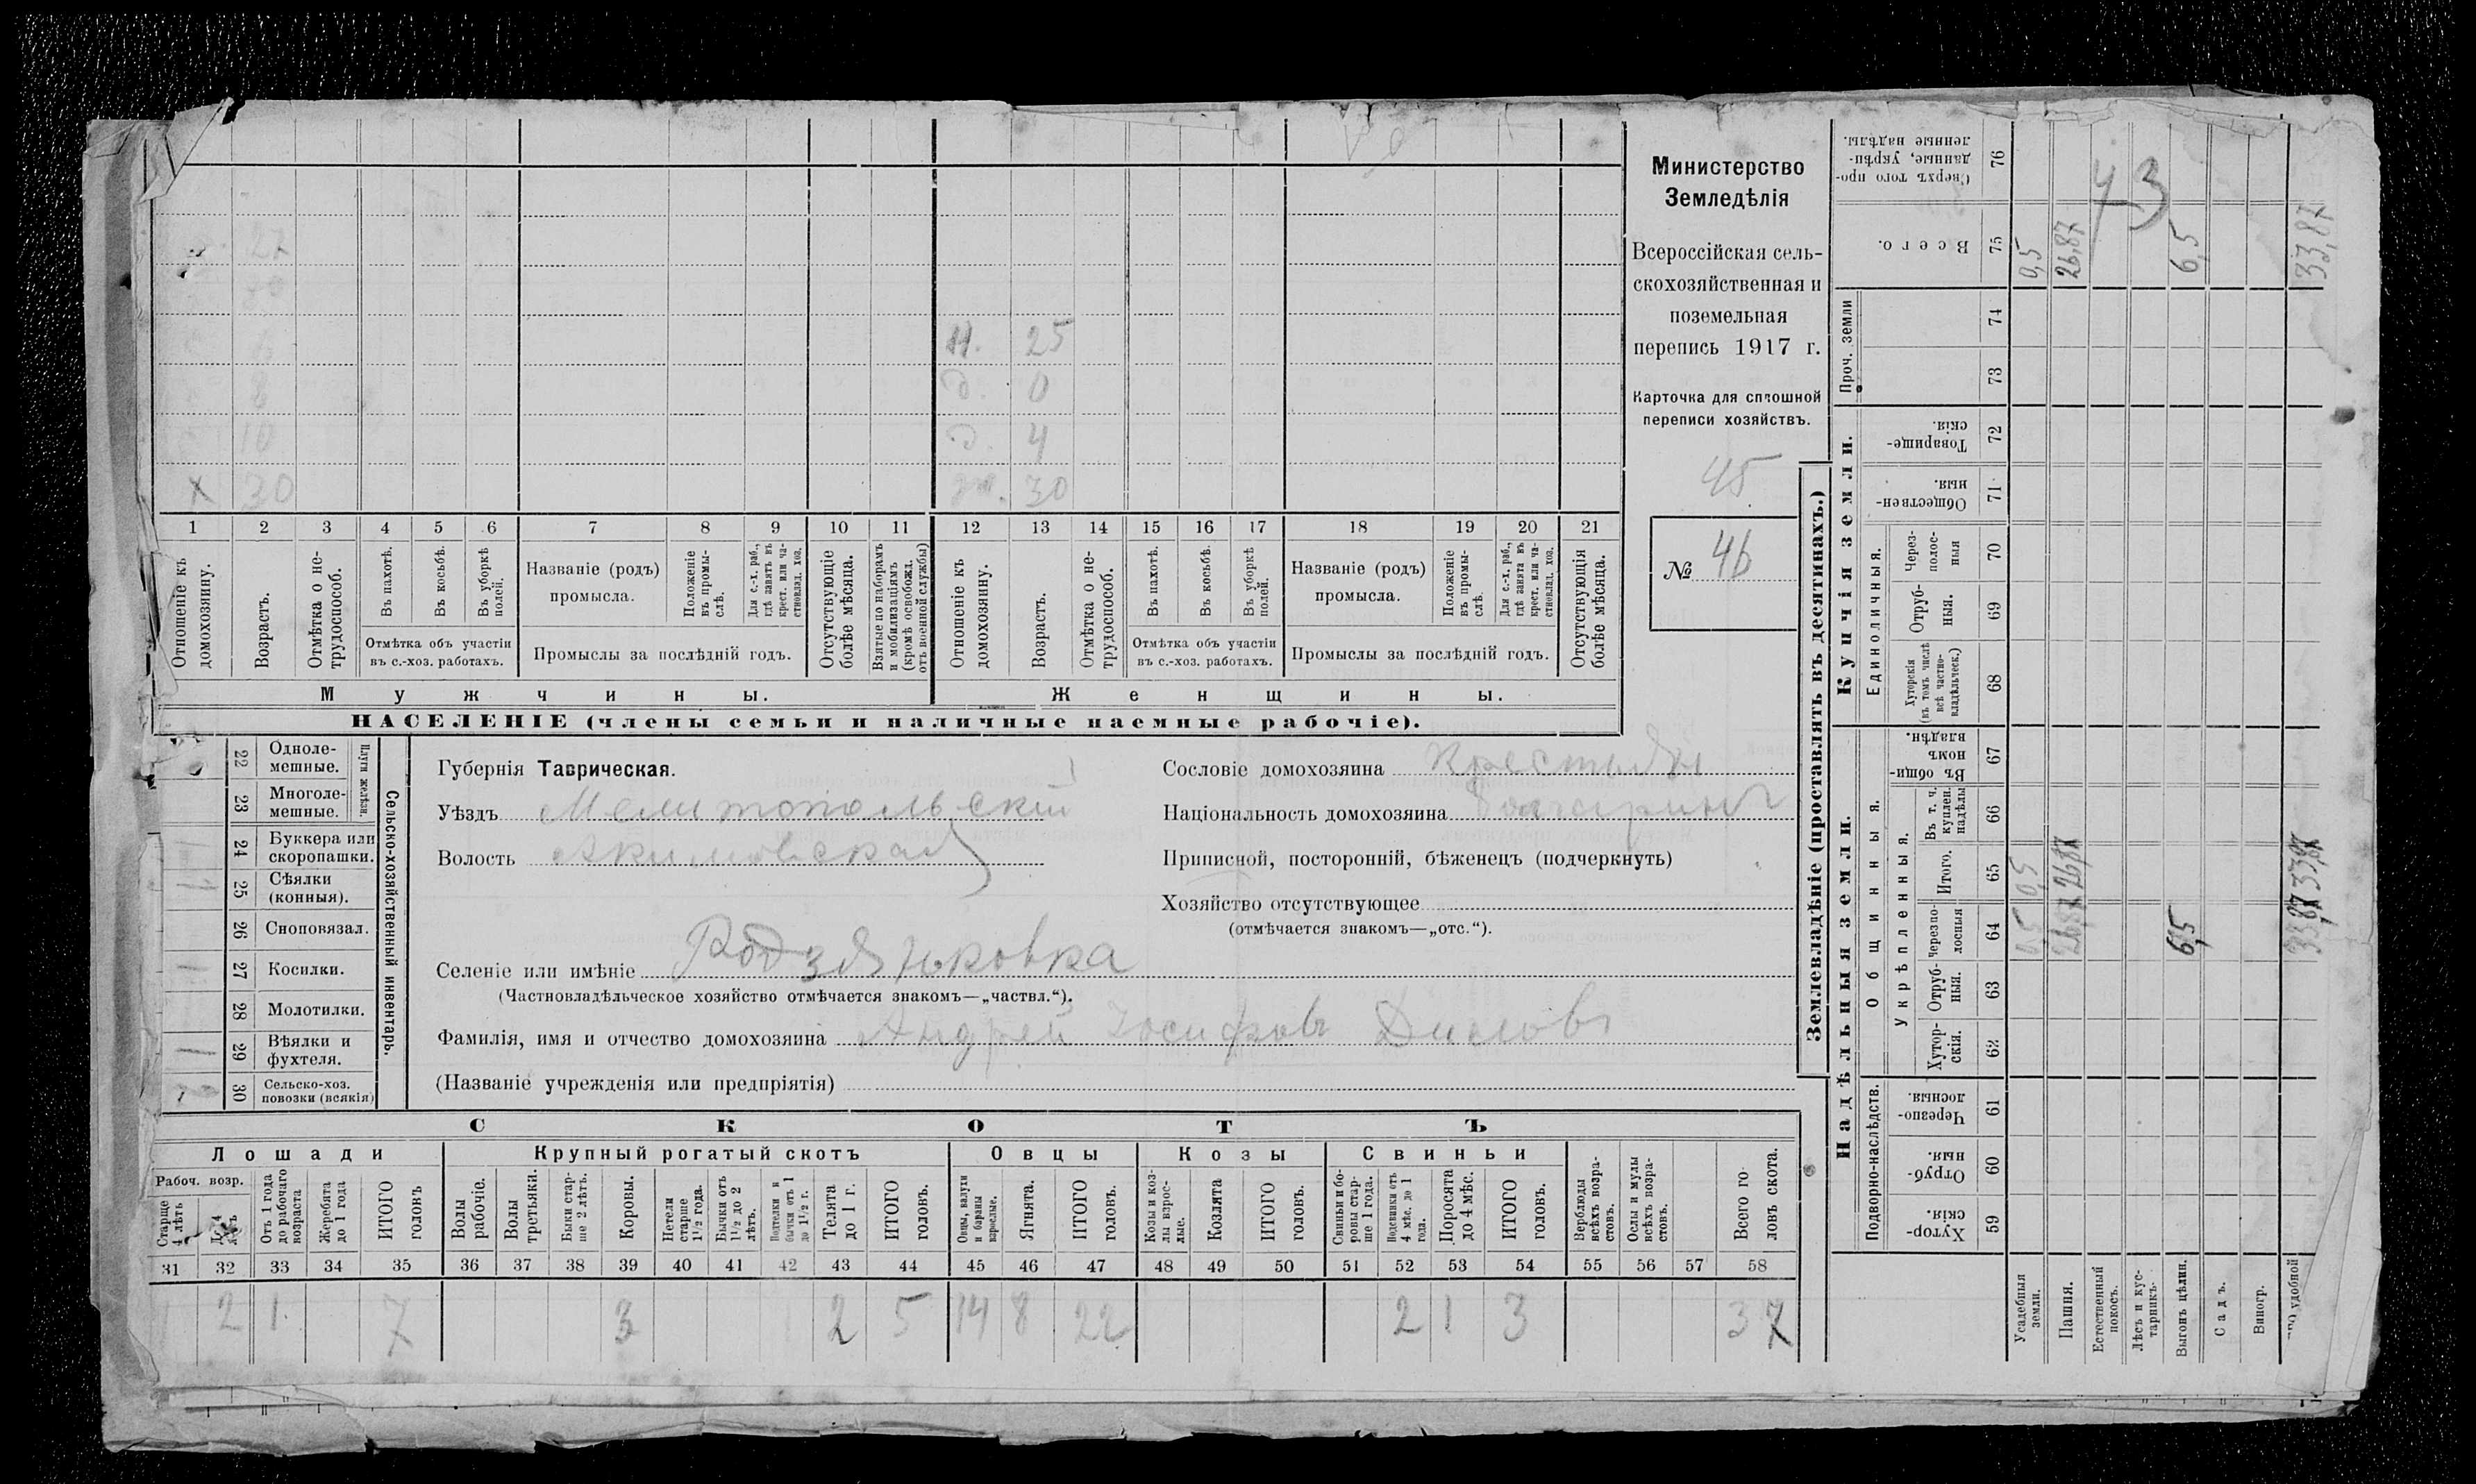 Министерство
Земледѣлія
Всероссійская сель-
скохозяйственная и
поземельная
перепись 1917 г.
Карточка для сплошной
переписи хозяйствъ.
45
№ 46
27
Н. 25
6
д. 0
8
д. 4
10
Х 30
ж. 30
1 2 3 4 5 6 7 8 9 10 11 12 13 14 15 16 17 18 19 20 21
Отношеніе къ домохозяину.
Возрастъ.
Отмѣтка о не-трудоспособ.
Въ пахотѣ.
Въ косьбѣ.
Въ уборкѣ полей.
Отмѣтка объ участіи въ с.-хоз. работахъ.
Названіе (родъ) промысла.
Положеніе въ промы-слѣ.
Для с.-х. раб., гдѣ занятъ въ крест. или ча-стновлад. хоз.
Промыслы за послѣдній годъ.
Отсутствующіе болѣе мѣсяца.
Взятые по наборамъ и мобилизаціямъ (кромѣ освобожд. отъ военной службы)
Отношеніе къ домохозяину.
Возрастъ.
Отмѣтка о не-трудоспособ.
Въ пахотѣ.
Въ косьбѣ.
Въ уборкѣ полей.
Отмѣтка объ участіи въ с.-хоз. работахъ.
Названіе (родъ) промысла.
Положеніе въ промы-слѣ.
Для с.-х. раб., гдѣ занята въ крест. или ча-стновлад. хоз.
Промыслы за послѣдній годъ.
Отсутствующія болѣе мѣсяца.
Мужчины.
Женщины.
НАСЕЛЕНІЕ (члены семьи и наличные наемные рабочіе).
Сельско-хозяйственный инвентарь.
Плуги желѣзн.
22 Одноле-мешные.
23 Многоле-мешные.
24 Буккера или скоропашки.
25 Сѣялки (конныя).
26 Сноповязал.
27 Косилки.
28 Молотилки.
29 Вѣялки и фухтеля.
30 Сельско-хоз. повозки (всякія)
Губернія Таврическая.
Уѣздъ Мелитопольскій
Волость Акимовская
Селеніе или имѣніе Родзянковка
(Частновладѣльческое хозяйство отмѣчается знакомъ—„частвл.“).
Фамилія, имя и отчество домохозяина Андрей Іосифовъ Димовъ
(Названіе учрежденія или предпріятія)
Сословіе домохозяина Крестьян
Національность домохозяина Болгаринъ
Приписной, посторонній, бѣженецъ (подчеркнуть)
Хозяйство отсутствующее
(отмѣчается знакомъ—„отс.“).
СКОТЪ
Лошади
Крупный рогатый скотъ
Овцы
Козы
Свиньи
Рабоч. возр.
Старше 4 лѣтъ
Отъ 1 года до рабочаго возраста
Жеребята до 1 года
ИТОГО головъ
Волы рабочіе.
Волы третьяки.
Быки стар-ше 2 лѣтъ.
Коровы.
Нетели старше 1½ года.
Бычки отъ 1½ до 2 лѣтъ.
Подтелки и бычки отъ 1 до 1½ г.
Телята до 1 г.
ИТОГО головъ.
Овцы, валухи и бараны взрослые.
Ягнята.
ИТОГО головъ.
Козы и коз-лы взрос-лые.
Козлята
ИТОГО головъ.
Свиньи и бо-ровы стар-ше 1 года.
Подсвинки отъ 4 мѣс. до 1 года.
Поросята до 4 мѣс.
ИТОГО головъ.
Верблюды всѣхъ возра-стовъ.
Ослы и мулы всѣхъ возра-стовъ.
Всего го-ловъ скота.
31 32 33 34 35 36 37 38 39 40 41 42 43 44 45 46 47 48 49 50 51 52 53 54 55 56 57 58
2 1 7 3 2 5 14 8 22 2 1 3 37
Землевладѣніе (проставлять въ десятинахъ.)
Надѣльныя земли.
Купчія земли.
Проч. земли
Подворно-наслѣдств.
Общинныя.
Укрѣпленныя.
Единоличныя.
Сверхъ того про-данные, укрѣп-ленные надѣлы. 76
Всего. 75
74
73
Товарище-скія. 72
Обществен-ныя. 71
Через-полос-ныя 70
Отруб-ныя. 69
Хуторскія (въ томъ числѣ всѣ частно-владѣльческ.) 68
Въ общин-номъ владѣн. 67
Въ т. ч. куплен. надѣлы 66
Итого. 65
Черезпо-лосныя 64
Отруб-ныя. 63
Хутор-скія. 62
Черезпо-лосныя. 61
Отруб-ныя. 60
Хутор-скія. 59
Усадебныя земли.
Пашня.
Естественный покосъ.
Лѣсъ и кус-тарникъ.
Выгонъ цѣлин.
Садъ.
Виногр.
удобной
43
0,5 26,87 6,5 33,87
0,5 26,87 33,87
0,5 26,87 6,5 33,87